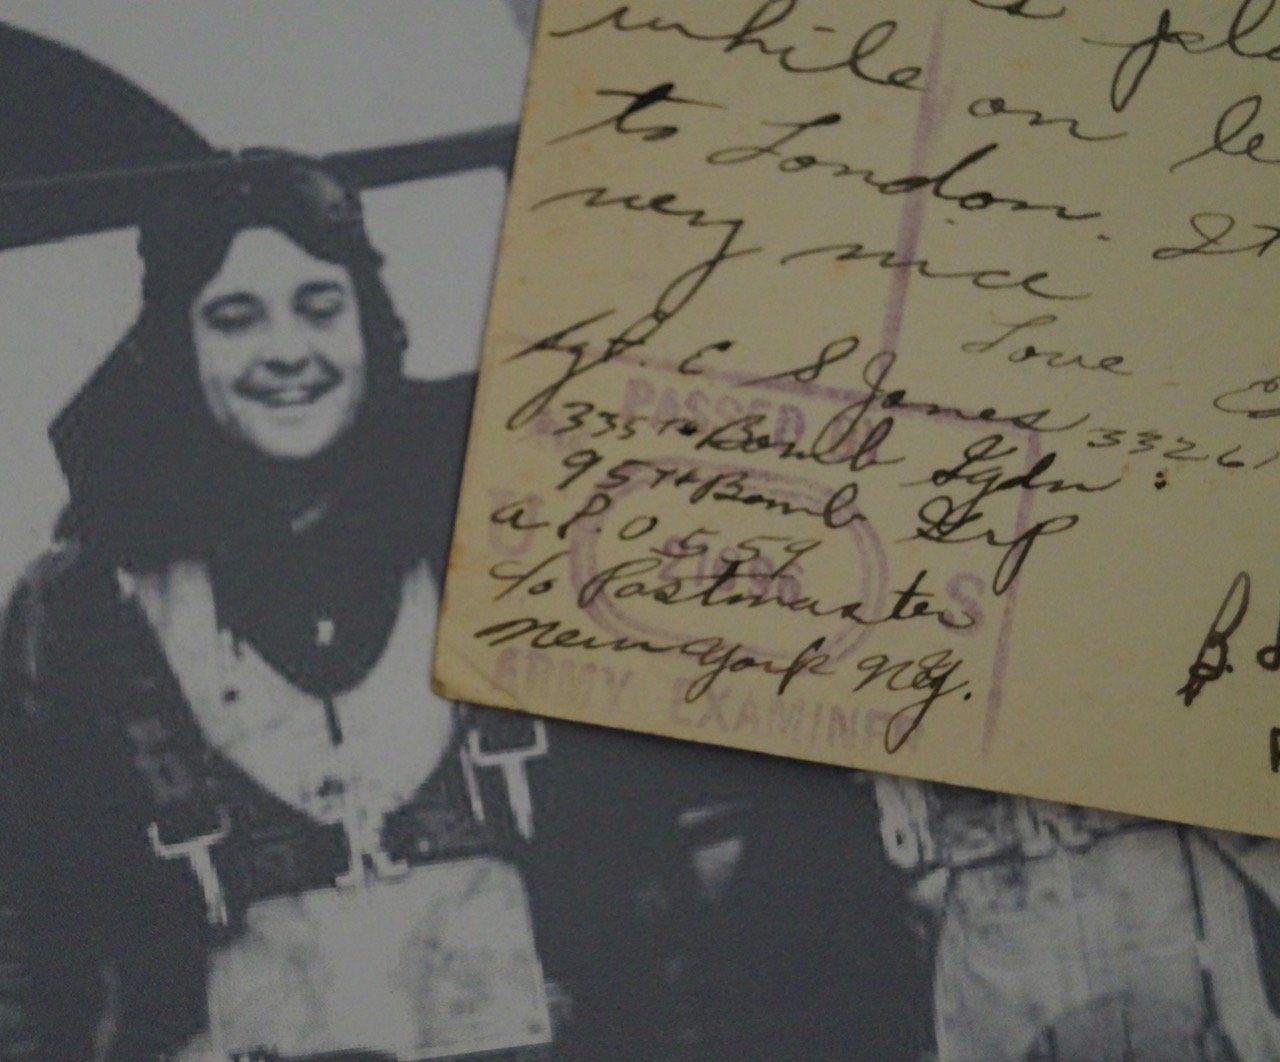 while on le
to London. It
very nice
Love.
Sgt. C S Jones 33261
335th Bomb Sqdn:
95th Bomb Grp
A.P.O 559
c/o Postmaster
New York N.Y.
PASSED BY
U S
ARMY EXAMINER
B.